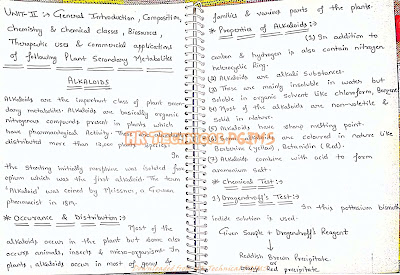 UNIT-II :→ General Introduction, Composition,
Chemistry & Chemical classes, Biosources,
Therapeutic uses & commercial applications
of following Plant Secondary Metabolites
ALKALOIDS
Alkaloids are the important class of plant secon-
dary metabolites. Alkaloids are basically organic
nitrogenous compounds present in plants which
have pharmacological Activity. They are
distributed more than 12,000 plants species.
In
the starting initially morphine was isolated from
opium which was the first alkaloid. The term
"Alkaloid" was coined by Meissner, a German
pharmacist in 1819.
* Occurance & Distribution :→
Most of the
alkaloids occurs in the plant but some also
occurs animals, insects & micro-organism. In
plants, alkaloids occurs in most of &
families & various parts of the plants.
* Properties of Alkaloids :→
(1) In addition to
carbon & hydrogen is also contain nitrogen
heterocyclic Ring.
(2) Alkaloids are alkali substances.
(3) These are mainly insoluble in water but
soluble in organic solvent like chloroform, Benzene
(4) Most of the alkaloids are non-volatile &
solid in nature.
(5) Alkaloids have sharp melting point.
are coloured in nature like
Berberine (yellow), Betanidin (Red).
(7) Alkaloids combine with acid to form
ammonium salt.
* Chemical Test :→
1) Dragendroff's Test :→
In this potassium bismuth
iodide solution is used.
Given Sample + Dragendroff's Reagent
↓
Reddish Brown Precipitate
or
Orange Red precipitate